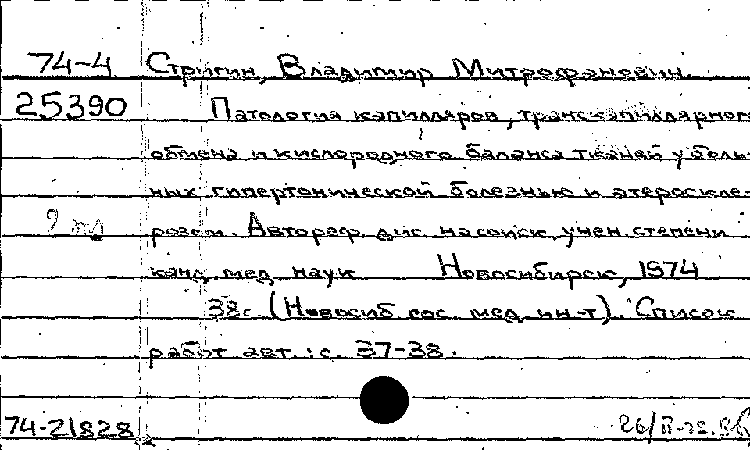 74-4 Стригин, Владимир Митрофанович.
25390 Патология капилляров, транскапиллярного
обмена и кислородного баланса тканей у боль-
ных гипертонической болезнью и атероскле-
розом. Автореф. дис. на соиск. учен. степени
канд. мед. наук. Новосибирск, 1974
38с. (Новосиб. гос. мед. ин-т). Список
работ авт.: с. 37-38.
74-21828